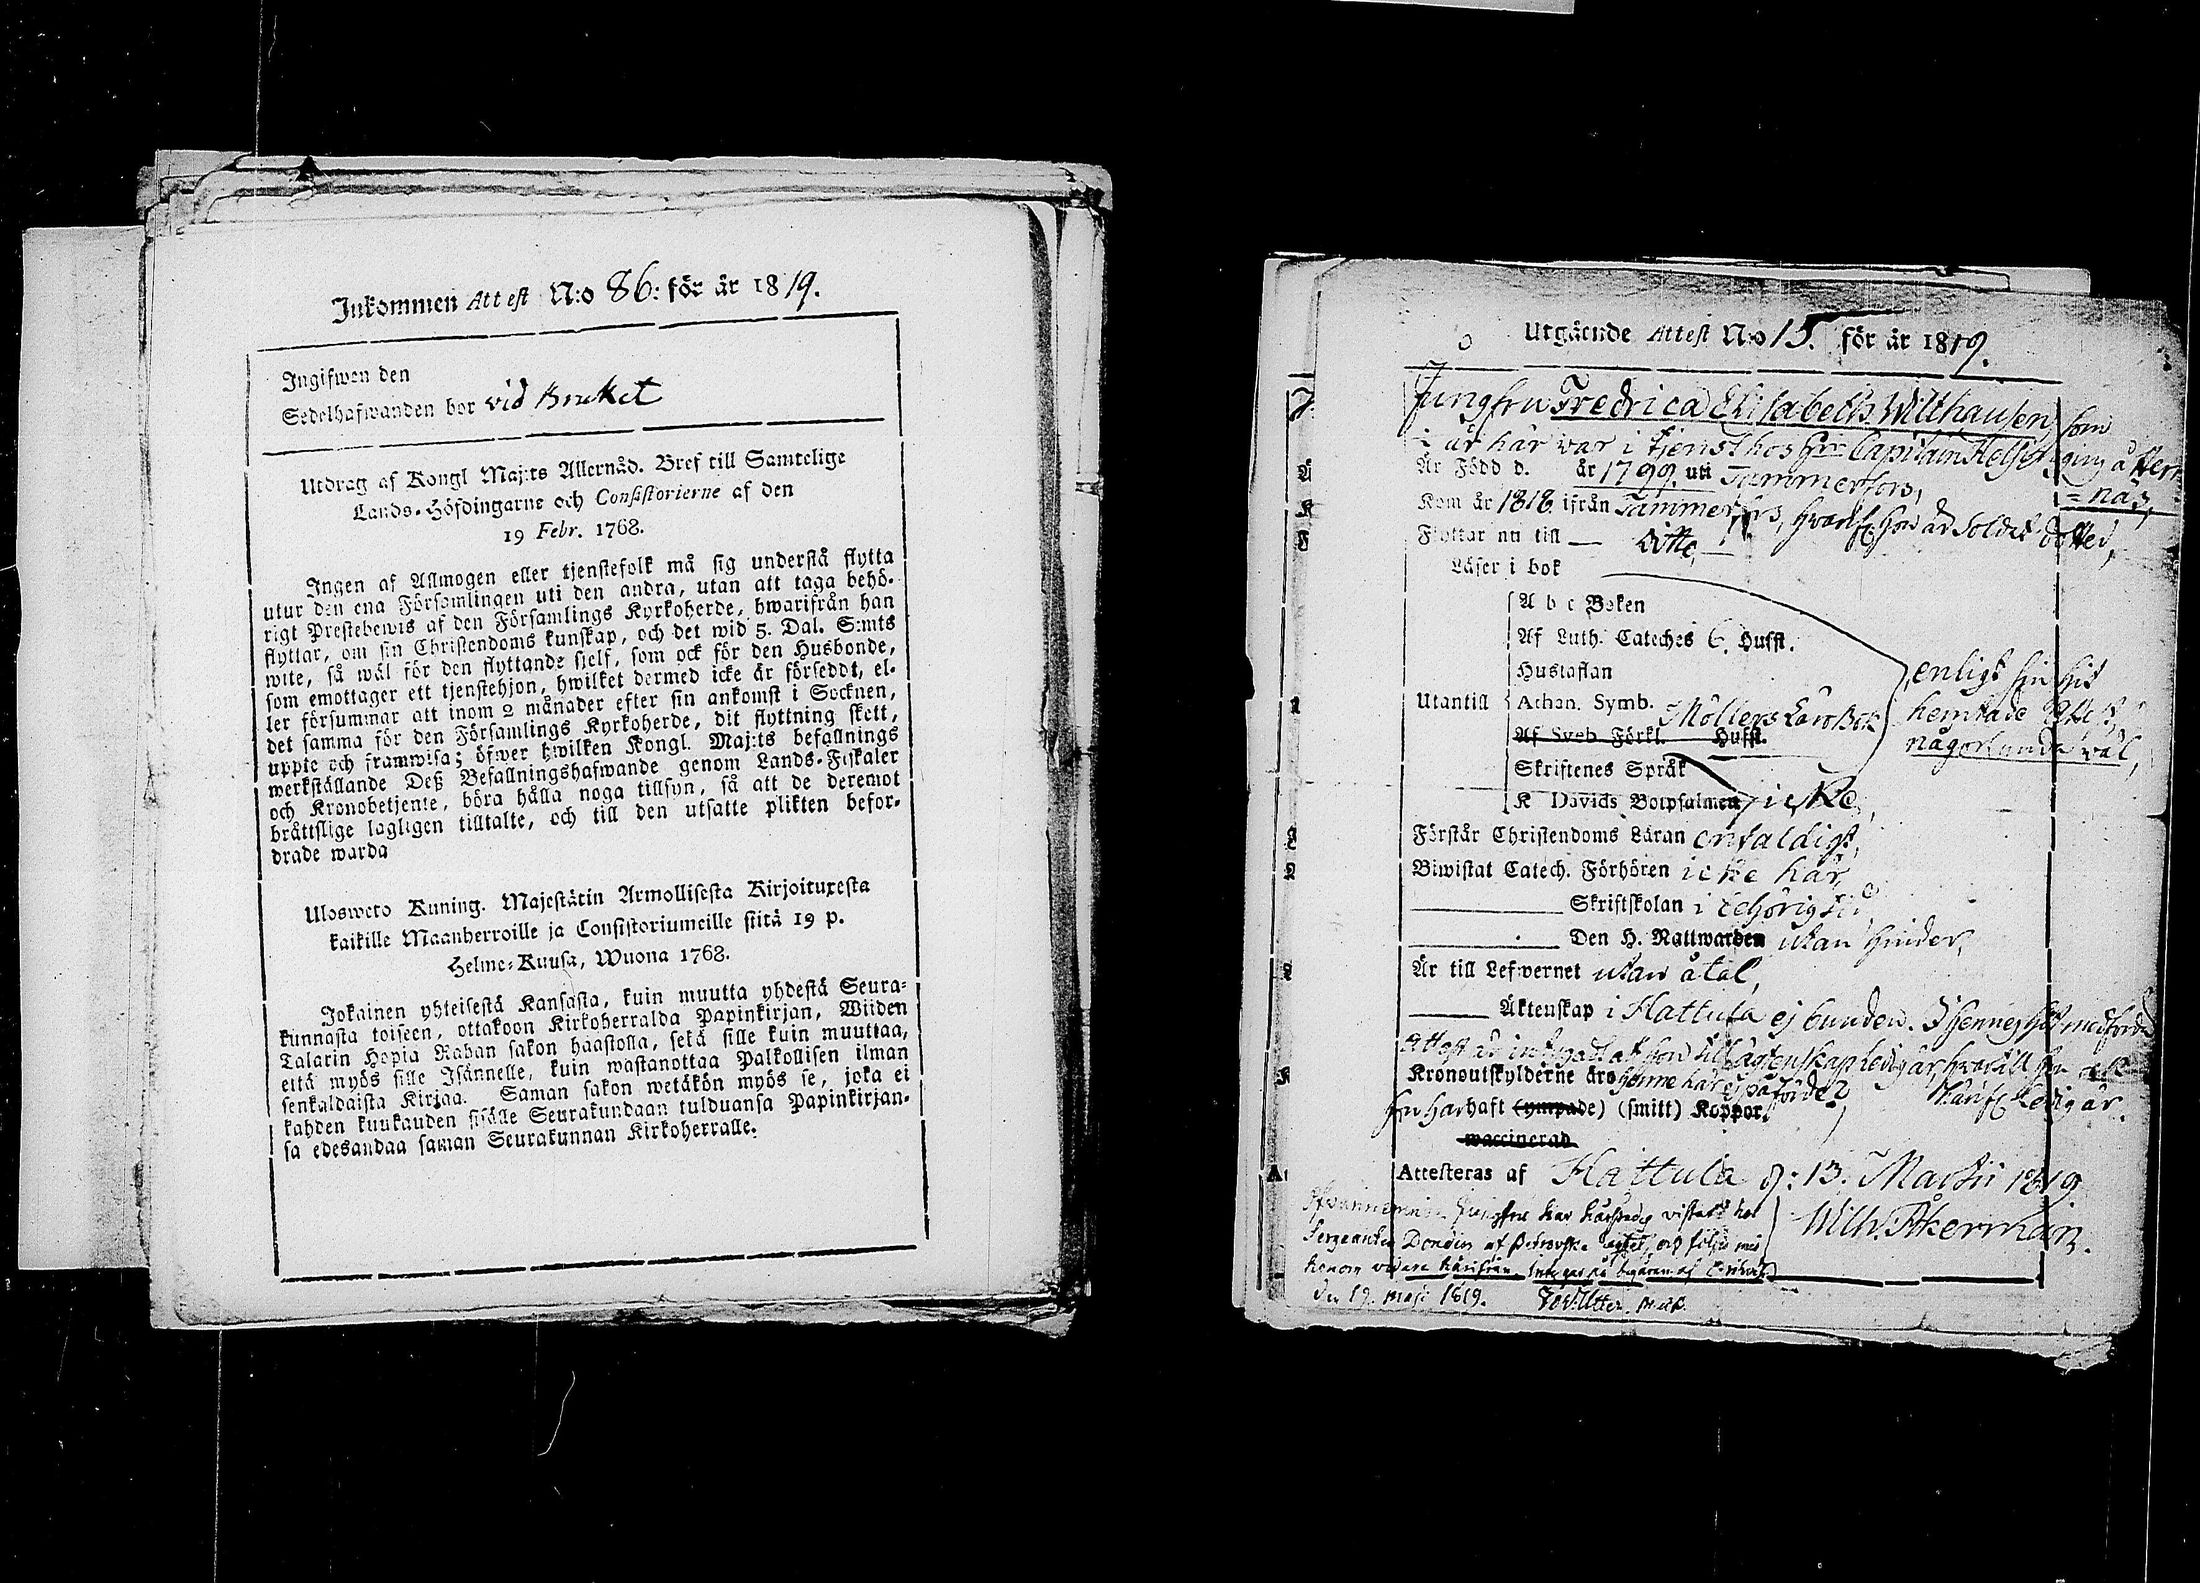 Inkommen Attest N:o 86: för år 1819.
Ingifwen den
Sedelhafwanden bor vid Bruket
Utdrag af Kongl Maj:ts Allernåd. Bref till Samtelige
Lands-Höfdingarne och Consistorierne af den
19 Febr. 1768.
Ingen af Allmogen eller tjenstefolk må sig understå flytta
utur den ena Församlingen uti den andra, utan att taga behö-
rigt Prestebewis af den Församlings Kyrkoherde, hwarifrån han
flyttar, om sin Christendoms kunskap, och det wid 5. Dal. S:mts
wite, så wäl för den flyttande sjelf, som ock för den Husbonde,
som emottager ett tjenstehjon, hwilket dermed icke är förseddt, el-
ler försummar att inom 2 månader efter sin ankomst i Socknen,
det samma för den Församlings Kyrkoherde, dit flyttning skett,
uppte och framwisa; öfwer hwilken Kongl. Maj:ts befallnings
werkställande Deß Befallningshafwande genom Lands-Fiskaler
och Kronobetjente, böra hålla noga tillsyn, så att de deremot
bråttslige lagligen tilltalte, och till den utsatte plikten befor-
drade warda
Ulosweto Kuning. Majestätin Armollisesta Kirjoituxesta
kaikille Maanherroille ja Consistoriumeille siitä 19 p.
Helme-Kuusa, Wuona 1768.
Jokainen yhteisestä Kansasta, kuin muutta yhdestä Seura-
kunnasta toiseen, ottakoon Kirkoherralda Papinkirjan, Wiiden
Talarin Hopia Rahan sakon haastolla, sekä sille kuin muuttaa,
että myös sille Isännelle, kuin wastanottaa Palkollisen ilman
senkaldaista Kirjaa. Saman sakon wetäkön myös se, joka ei
kahden kuukauden sisälle Seurakundaan tulduansa Papinkirjan-
sa edesandaa saman Seurakunnan Kirkoherralle.
Utgående Attest N:o 15. för år 1819.
Jungfru Fredrica Elisabeth Wilthausen, som
i år här war i tjenst hos Capitain
Är Född d. år 1799. uti Tammerfors,
Kom år 1818 ifrån Tammerfors, hon är Soldat dotter,
Flyttar nu till — ditto, —
Läser i bok
A b c Boken
Af Luth. Cateches 6. Hufst.
Hustaflan
Utantill Athan. Symb.
Möllers LäroBok
Af Sveb. Förkl. Hufst.
enligt sin hit
hemtade Attest,
någorlunda wäl,
Skriftenes Språk
K Davids Botpsalmer icke,
Förstår Christendoms Läran enfaldigt,
Biwistat Catech. Förhören icke här,
Skriftskolan i behörig tid,
Den H. Nattwarden utan hinder,
Är till Lefwernet utan åtal,
Äktenskap i Hattula ej bunden.
Attest är
Kronoutskylderne äro henne här ej påförde
hon har haft (ympade) (smitt) Koppor.
waccinerad
Attesteras af Hattula d: 13. Martii 1819
Wilh. Åkerman.
Jungfru har härstädes vistats hos
Sergeanten af och följer med
honom vidare härifrån
den 19. maji 1819.